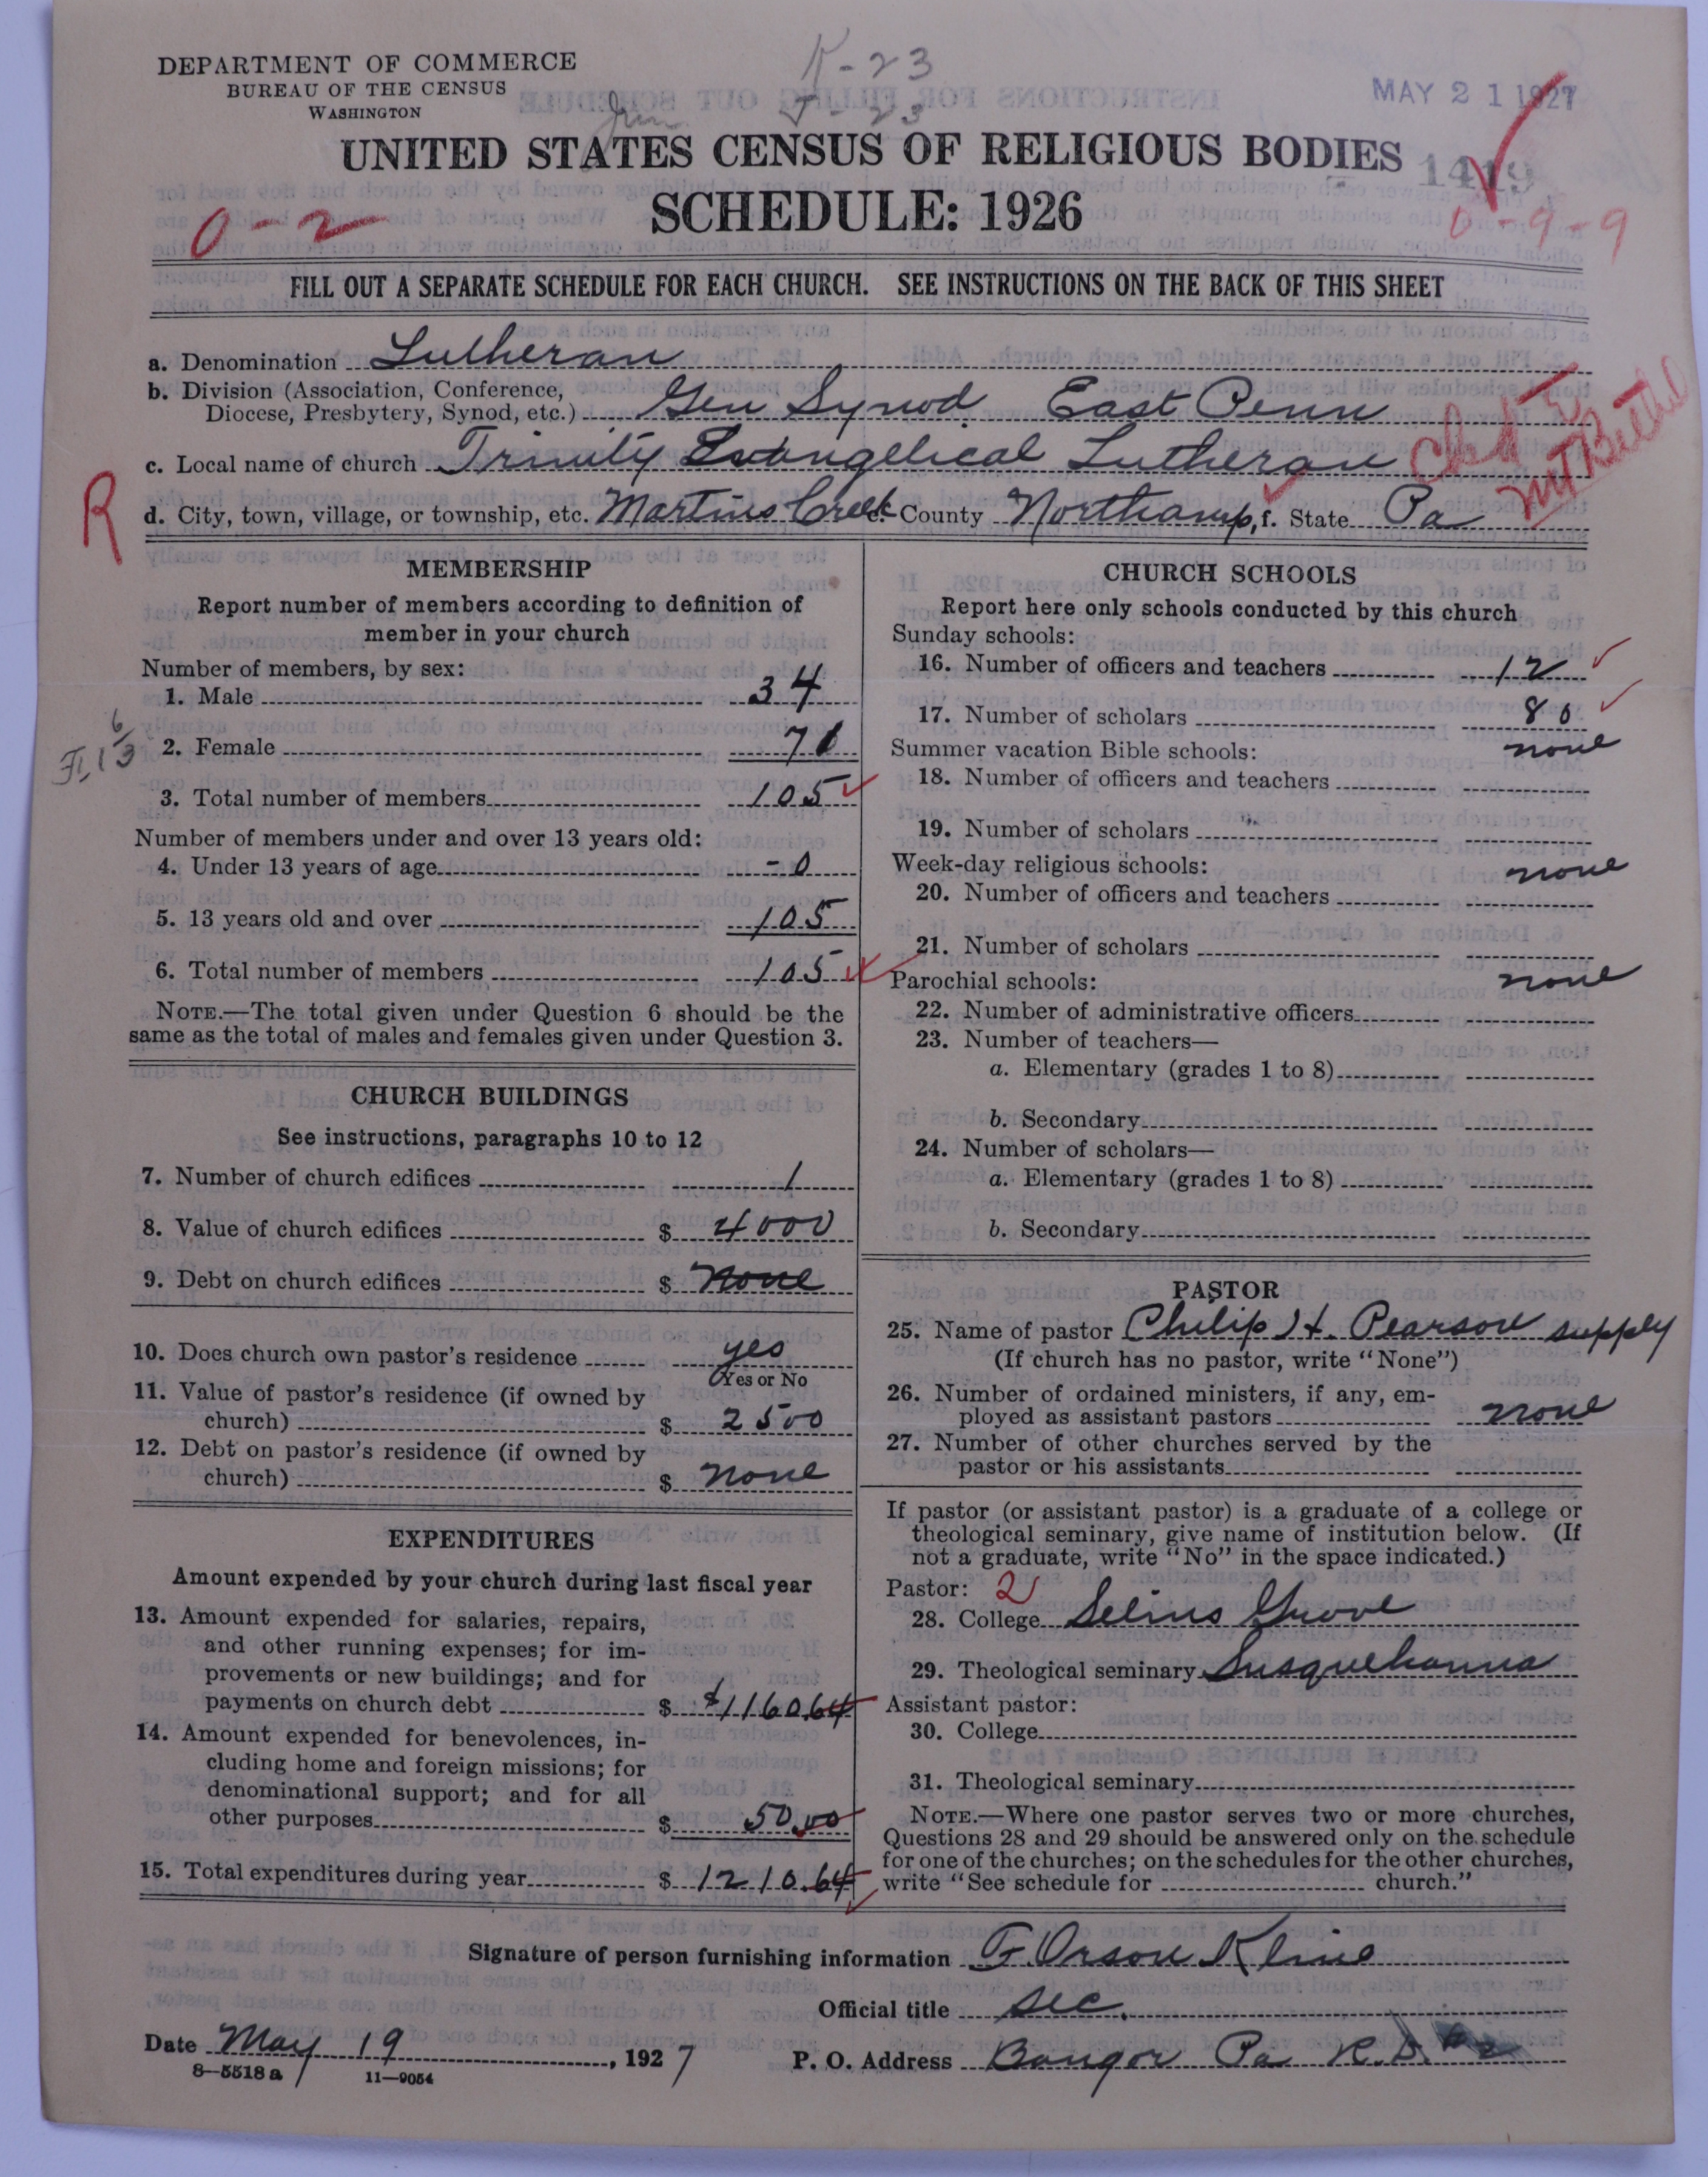 K-23
DEPARTMENT OF COMMERCE
BUREAU OF THE CENSUS
WASHINGTON
MAY 21 1927
J-23
UNITED STATES CENSUS OF RELIGIOUS BODIES
1419
SCHEDULE: 1926
0-2
0-9-9
FILL OUT A SEPARATE SCHEDULE FOR EACH CHURCH. SEE INSTRUCTIONS ON THE BACK OF THIS SHEET
a. Denomination Lutheran
b. Division (Association, Conference,
Diocese, Presbytery, Synod, etc.) Gen Synod East Penn
c. Local name of church Trinity Evangelical Lutheran
R
d. City, town, village, or township, etc. Martins Creek e. County Northamp, f. State Pa
MEMBERSHIP
Report number of members according to definition of
member in your church
Number of members, by sex:
1. Male 34
2. Female 71
3. Total number of members 105
Number of members under and over 13 years old:
4. Under 13 years of age - 0
5. 13 years old and over 105
6. Total number of members 105
NOTE.—The total given under Question 6 should be the
same as the total of males and females given under Question 3.
CHURCH BUILDINGS
See instructions, paragraphs 10 to 12
7. Number of church edifices 1
8. Value of church edifices $ 4000
9. Debt on church edifices $ none
10. Does church own pastor's residence yes
Yes or No
11. Value of pastor's residence (if owned by
church) $ 2500
12. Debt on pastor's residence (if owned by
church) $ none
EXPENDITURES
Amount expended by your church during last fiscal year
13. Amount expended for salaries, repairs,
and other running expenses; for im-
provements or new buildings; and for
payments on church debt $ $1160.64
14. Amount expended for benevolences, in-
cluding home and foreign missions; for
denominational support; and for all
other purposes $ 50.00
15. Total expenditures during year $ 1210.64
CHURCH SCHOOLS
Report here only schools conducted by this church
Sunday schools:
16. Number of officers and teachers 12
17. Number of scholars 80
Summer vacation Bible schools: none
18. Number of officers and teachers
19. Number of scholars
Week-day religious schools: none
20. Number of officers and teachers
21. Number of scholars
Parochial schools: none
22. Number of administrative officers
23. Number of teachers—
a. Elementary (grades 1 to 8)
b. Secondary
24. Number of scholars—
a. Elementary (grades 1 to 8)
b. Secondary
PASTOR
25. Name of pastor Philip H. Pearson supply
(If church has no pastor, write "None")
26. Number of ordained ministers, if any, em-
ployed as assistant pastors none
27. Number of other churches served by the
pastor or his assistants
If pastor (or assistant pastor) is a graduate of a college or
theological seminary, give name of institution below. (If
not a graduate, write "No" in the space indicated.)
Pastor: 2
28. College Selins Grove
29. Theological seminary Susquehanna
Assistant pastor:
30. College
31. Theological seminary
NOTE.—Where one pastor serves two or more churches,
Questions 28 and 29 should be answered only on the schedule
for one of the churches; on the schedules for the other churches,
write "See schedule for church."
Signature of person furnishing information F. Orson Kline
Official title Sec.
Date May 19, 1927
P. O. Address Bangor Pa R.D. #2
8—5518 a
11—9054